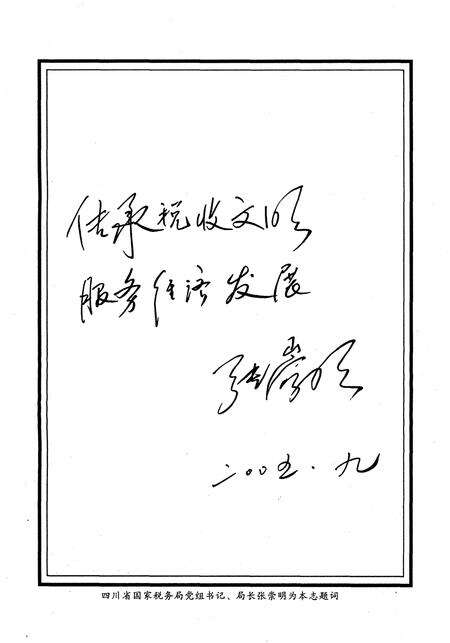 传承税收文明
服务经济发展
张崇明
二〇〇五.九
四川省国家税务局党组书记、局长张崇明为本志题词